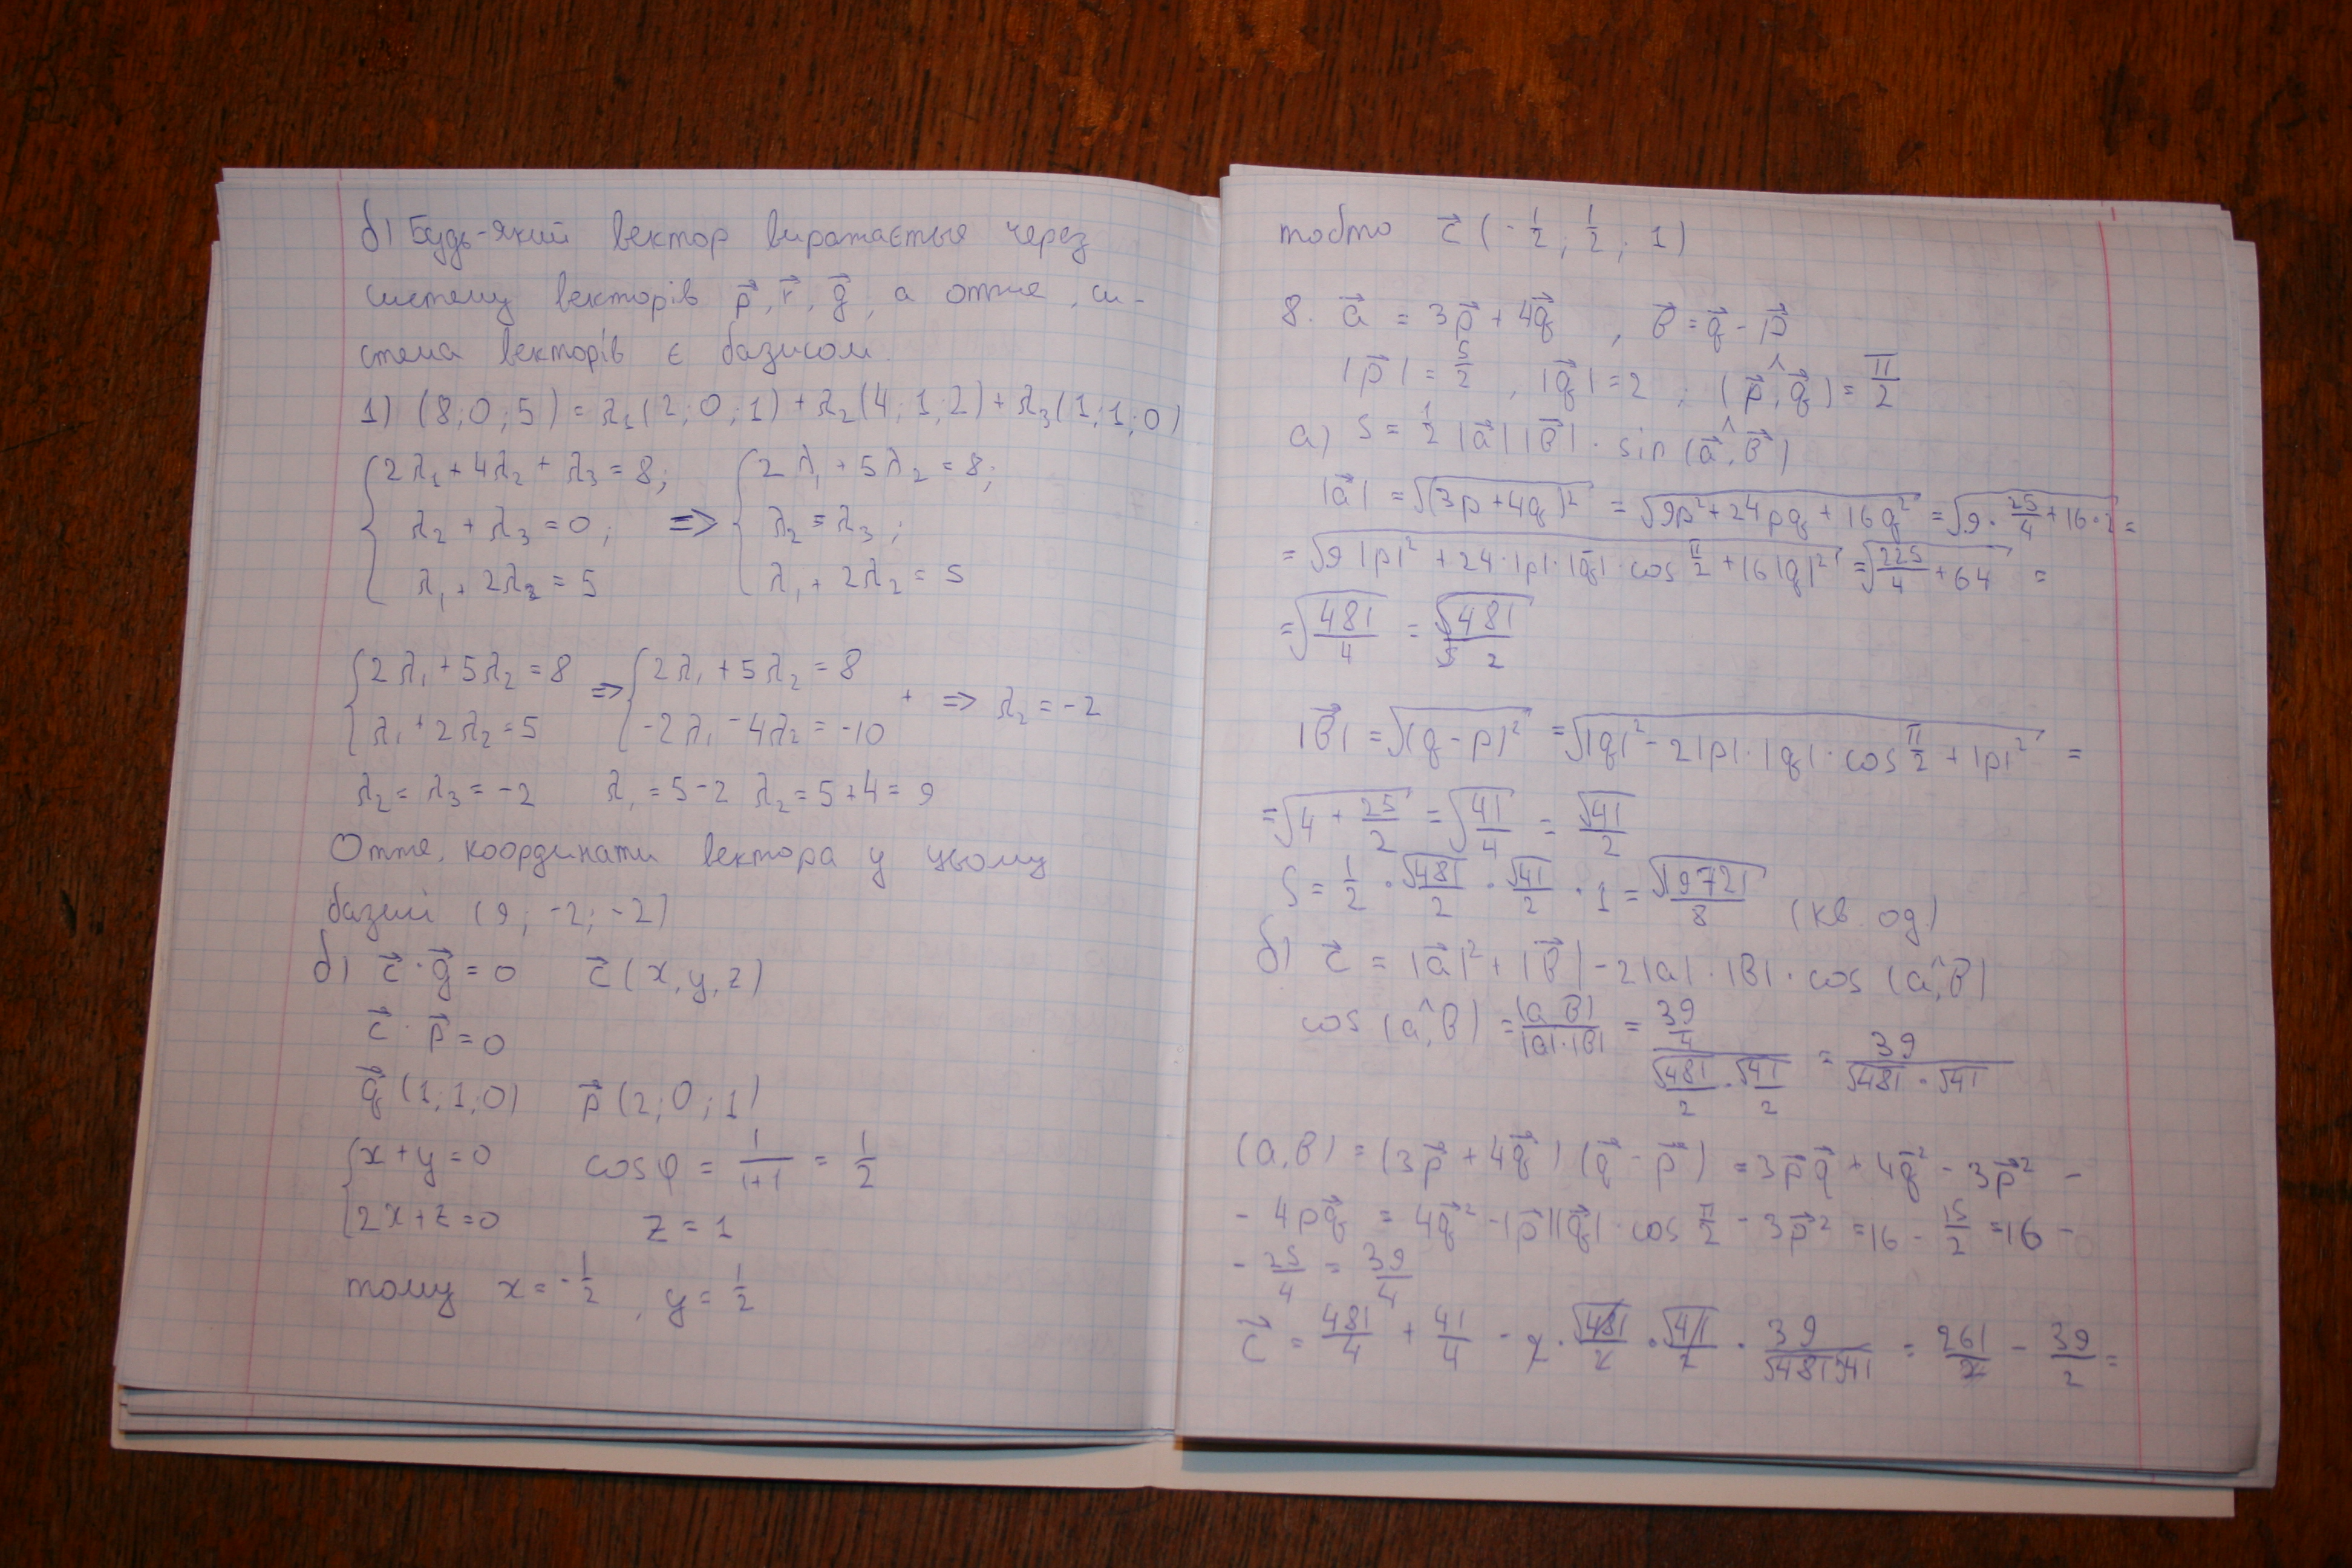 б) Будь-який вектор виражається через
систему векторів p⃗, r⃗, q⃗, а отже, си-
стема векторів є базисом.
1) (8; 0; 5) = λ₁(2; 0; 1) + λ₂(4; 1; 2) + λ₃(1; 1; 0)
{2λ₁ + 4λ₂ + λ₃ = 8; => {2λ₁ + 5λ₂ = 8;
λ₂ + λ₃ = 0; λ₂ = λ₃;
λ₁ + 2λ₂ = 5 λ₁ + 2λ₂ = 5
{2λ₁ + 5λ₂ = 8 => {2λ₁ + 5λ₂ = 8 + => λ₂ = -2
λ₁ + 2λ₂ = 5 -2λ₁ - 4λ₂ = -10
λ₂ = λ₃ = -2 λ₁ = 5 - 2λ₂ = 5 + 4 = 9
Отже, координати вектора у цьому
базисі (9; -2; -2)
б) c⃗ · q⃗ = 0 c⃗ (x, y, z)
c⃗ · p⃗ = 0
q⃗ (1; 1; 0) p⃗ (2; 0; 1)
{x + y = 0 cos φ = 1/(1+1) = 1/2
2x + z = 0 z = 1
тому x = -1/2, y = 1/2
тобто c⃗ (-1/2; 1/2; 1)
8. a⃗ = 3p⃗ + 4q⃗, b⃗ = q⃗ - p⃗
|p⃗| = 5/2, |q⃗| = 2; (p⃗,^q⃗) = π/2
а) S = 1/2 |a⃗| |b⃗| · sin (a⃗,^b⃗)
|a⃗| = √(3p + 4q)² = √(9p² + 24pq + 16q²) = √(9 · 25/4 + 16 · 2 =
= √(9|p|² + 24 · |p| · |q| · cos π/2 + 16|q|²) = √(225/4 + 64) =
= √(481/4) = √481/2
|b⃗| = √(q - p)² = √(|q|² - 2|p| · |q| · cos π/2 + |p|²) =
= √(4 + 25/2) = √(41/4) = √41/2
S = 1/2 · √481/2 · √41/2 · 1 = √19721/8 (кв. од)
б) c⃗ = |a⃗|² + |b⃗| - 2|a| · |b| · cos (a,^b)
cos (a,^b) = (a b)/(|a| · |b|) = (39/4)/(√481/2 · √41/2) = 39/(√481 · √41)
(a, b) = (3p⃗ + 4q⃗) (q⃗ - p⃗) = 3p⃗q⃗ + 4q⃗² - 3p⃗² -
- 4pq⃗ = 4q⃗² - |p⃗||q⃗| · cos π/2 - 3p⃗² = 16 - 15/2 = 16 -
- 25/4 = 39/4
c⃗ = 481/4 + 41/4 - 2 · √481/2 · √41/2 · 39/(√481 √41) = 261/2 - 39/2 =